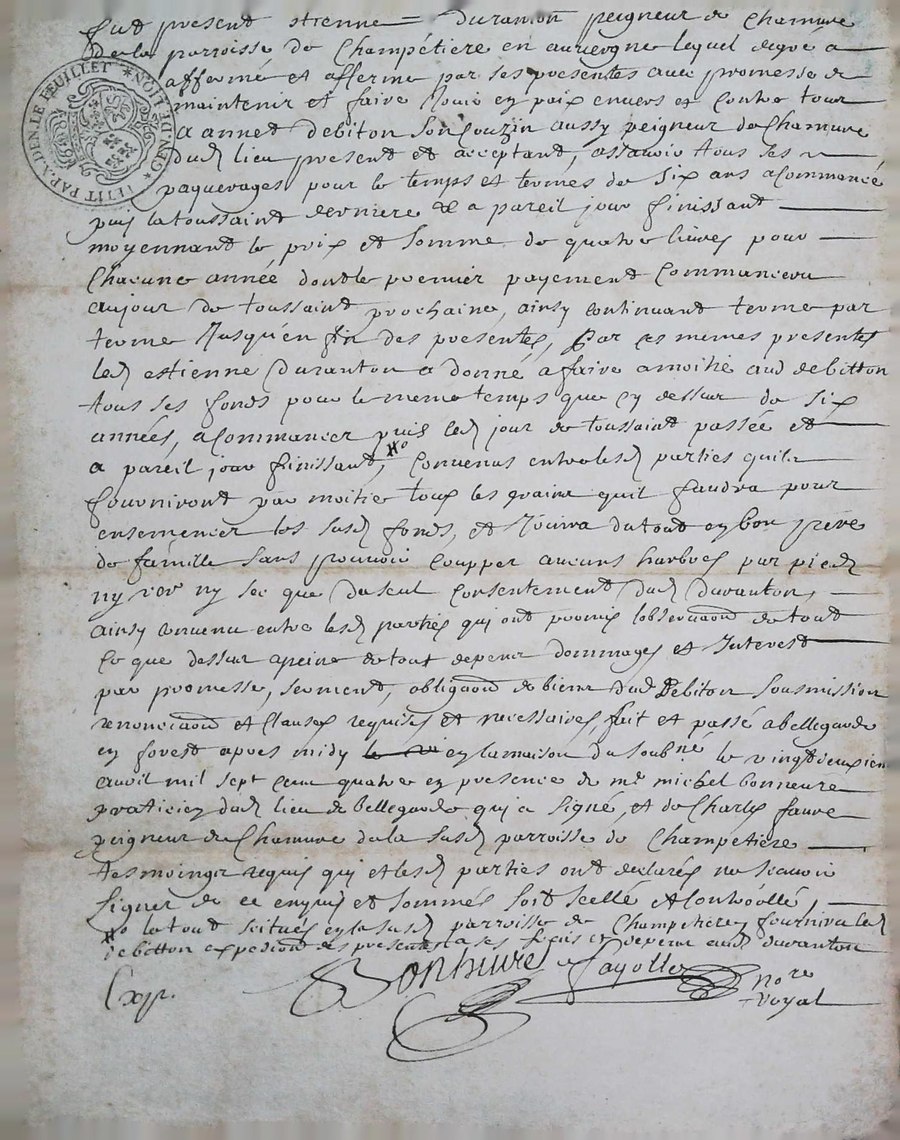 fut present etienne = duranton peigneur de chamvre
de la parroisse de Champétiere en auvergne lequel de gré a
affermé et afferme par ses presentes avec promesse de
maintenir et faire Jouir en paix envers et contre tous
a annet debiton son Couzin aussy peigneur de Chamvre
dud lieu present et acceptant, assavoir tous ses
paquerages pour le temps et termes de six ans a Commancé
puis la toussaint derniere et a pareil jour finissant
moyennant le prix et somme de quatre livres pour
Chacune année dont le premier payement Commancera
au jour de toussaint prochaine, ainsy continuant terme par
terme Jusqu'en fin des presentes, Par ces memes presentes
led estienne Duranton a donné a faire a moitié aud debitton
tous ses fonds pour le meme temps que cy dessus de six
années, a Commancer puis led jour de toussaint passée et
a pareil jour finissant, Ho Convenus entre lesd parties quils
fourniront par moitié tous les grains quil faudra pour
ensemencer les susd fonds, et Jouira du tout en bon pere
de famille sans pouvoir Coupper aucuns harbres par pied
ny ver ny sec que du seul Consentement dud duranton,
ainsy convenu entre lesd parties qui ont promis lobservaond de tout
Ce que dessus a peine de tous depens dommages et Interest
par promesse, serment, obligaond de biens dud Debiton Sousmission
renonciaond et Clauses requises et necessaires, fait et passé a bellegarde
en forest apres midy en la maison du soubné le vingt deuxien
avril mil sept cent quatre en presence de me michel bonneure
praticien dud lieu de bellegarde qui a signé, et de Charles faure
peigneur de Chamvre de la susd parroisse de Champetiere
tesmoings requis qui et lesd parties ont declarés ne scavoir
signer de ce enquis et sommés soit scellé et Controollé,
Ho le tout scitués en la susd parroisse de Champetiere, fournira led
debitton expediond des presentes a ses frais et depens aud duranton
Bonhiure Fayolle Nore
Royal
Exp.
PETIT PAP. A DEN. LE FEUILLET